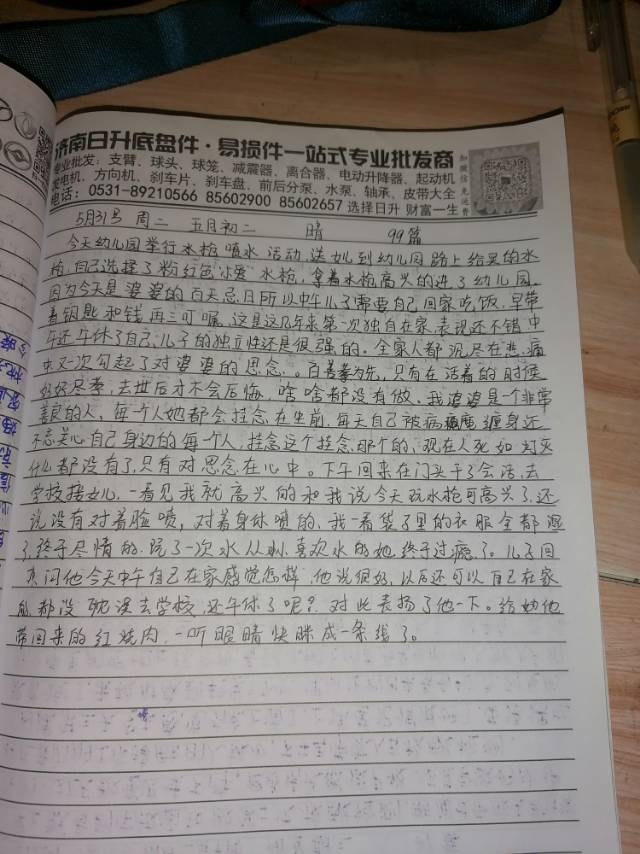 济南日升底盘件·易损件一站式专业批发商
专业批发：支臂、球头、球笼、减震器、离合器、电动升降器、起动机
发电机、方向机、刹车片、刹车盘、前后分泵、水泵、轴承、皮带大全
电话：0531-89210566 85602900 85602657 选择日升 财富一生
加微信 免运费
5月31号 周二 五月初二 晴 99篇
今天幼儿园举行水枪喷水活动，送女儿到幼儿园路上给买的水
枪，自己选择了粉红色水枪，拿着水枪高兴的进了幼儿园。
因为今天是婆婆的百天忌日所以中午儿子需要自己回家吃饭，早带
着钥匙和钱再三叮嘱，这是这几年来第一次独自在家，表现还不错中
午还午休了自己，儿子的独立性还是很强的。全家人都沉尽在悲痛
中又一次勾起了对婆婆的思念。百善孝为先，只有在活着的时候
好好尽孝，去世后才不会后悔，啥啥都没有做，我婆婆是个非常
善良的人，每一个人她都会挂念在生前，每天自己被病魔缠身还
不忘关心自己身边的每一个人，挂念这个挂念那个的，现在人死如灯灭
什么都没有了，只有对思念在心中。下午回来在门头干了会活，去
学校接女儿，一看见我就高兴的和我说今天玩水枪可高兴了，还
说没有对着脸喷，对着身体喷的，我一看袋子里的衣服全都湿
了，终于尽情的玩了一次水从小喜欢水的她终于过瘾了。儿子回
来问他今天中午自己在家感觉怎样，他说很好，以后还可以自己在家
都没耽误去学校，还午休了呢？对此表扬了他一下。给他
带回来的红烧肉，一听眼睛快眯成一条线了。